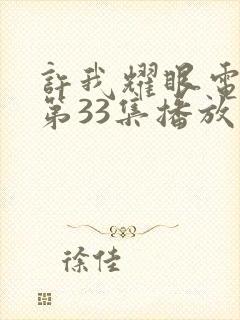 許我耀眼電
第33集播放
徐佳